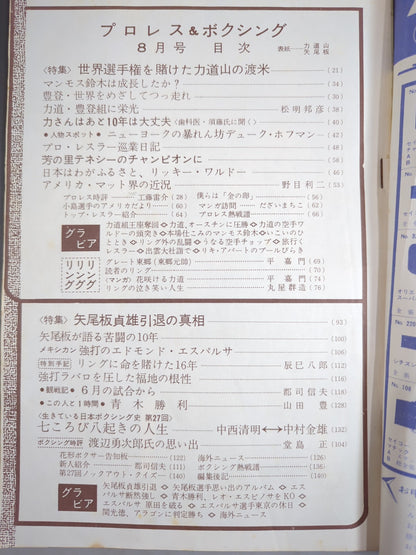 プロレス&ボクシング
8月号 目次
表紙—力道山 矢尾板
〈特集〉世界選手権を賭けた力道山の渡米 (21)
マンモス鈴木は成長したか? (34)
豊登・世界をめざしてつっ走れ (30)
力道・豊登組に栄光 松明邦彦 (38)
力さんはあと10年は大丈夫〈歯科医・須藤氏に聞く〉 (40)
●人物スポット●ニューヨークの暴れん坊デューク・ホフマン (42)
プロ・レスラー巡業日記 (48)
芳の里テネシーのチャンピオンに (58)
日本はわがふるさと、リッキー・ワルドー (46)
アメリカ・マット界の近況 野目利二 (53)
プロレス時評 工藤雷介 (28)
僕らは「金の卵」 (56)
小島選手のアメリカだより (60)
マンガ訪問 だざいまちこ (62)
トップ・レスラー紹介 (64)
プロレス熱戦譜 (66)
グラビア
力道組王座奪回
リング外の乱闘
うなる空手チョップ
リリリンンンググググ
グレート東郷(東郷元郎) 平嘉門 (69)
読者のリング (70)
(マンガ)花咲ける力道 平嘉門 (74)
丸屋群造 (76)
〈特集〉矢尾板貞雄引退の真相 (93)
矢尾板が語る苦闘の10年 (100)
メキシカン強打のエドモンド・エスパルサ (106)
特別手記 リングに命を賭けた16年 辰巳八郎 (112)
強打ラバロを圧した福地の根性 (116)
●観戦記●6月の試合から 郡司信夫 (118)
●この人と1時間●青木勝利 山田豊 (128)
〈生きている日本ボクシング史 第27回〉
七ころび八起きの人生 中西清明↔中村金雄 (132)
ボクシング時評 渡辺勇次郎氏の思い出 堂島正 (104)
花形ボクサー告知板 (122)
海外ニュース (126)
新人紹介 郡司信孝 (111)
ボクシング熱戦譜 (136)
第27回ノックアウト・クイズ (140)
編集後記 (140)
グラビア
矢尾板貞雄引退
矢尾板選手思い出のアルバム
エスパルサ断然強し
青木勝利、レオ・エスピノサをKO
エスパルサ 原田を破る
エスパルサ選手東京の休日
関光徳、アラゴンに判定勝ち
海外ニュース